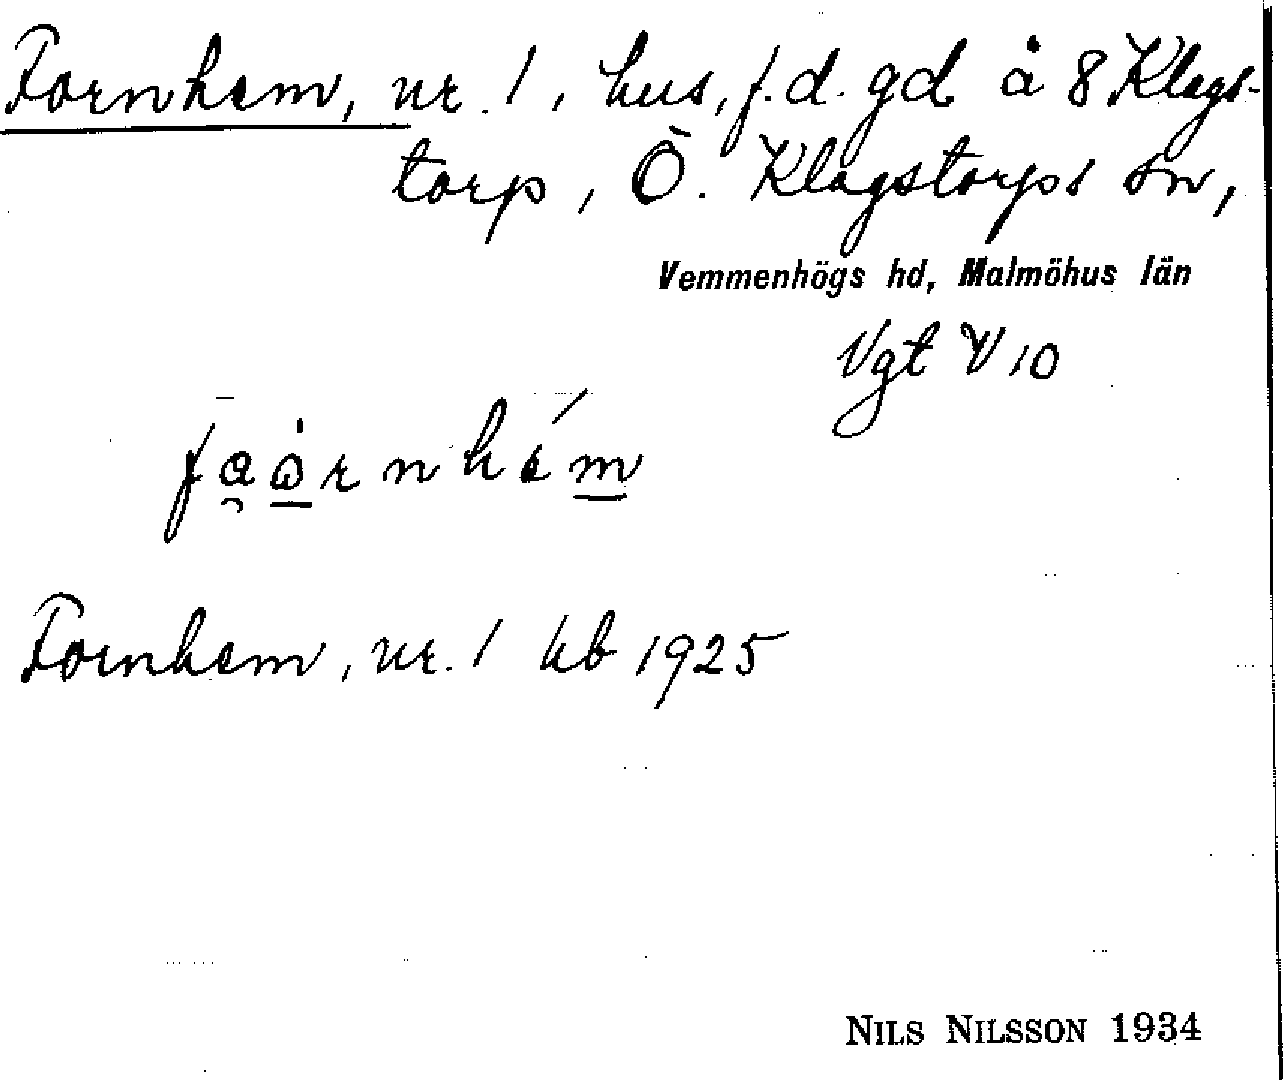 Fornhem, nr. 1, hus, f.d. gd å 8 Klags-
torp, Ö. Klagstorps sn,
Vemmenhögs hd, Malmöhus län
Vgt V 10
Fornhem, nr. 1 kb 1925
NILS NILSSON 1934